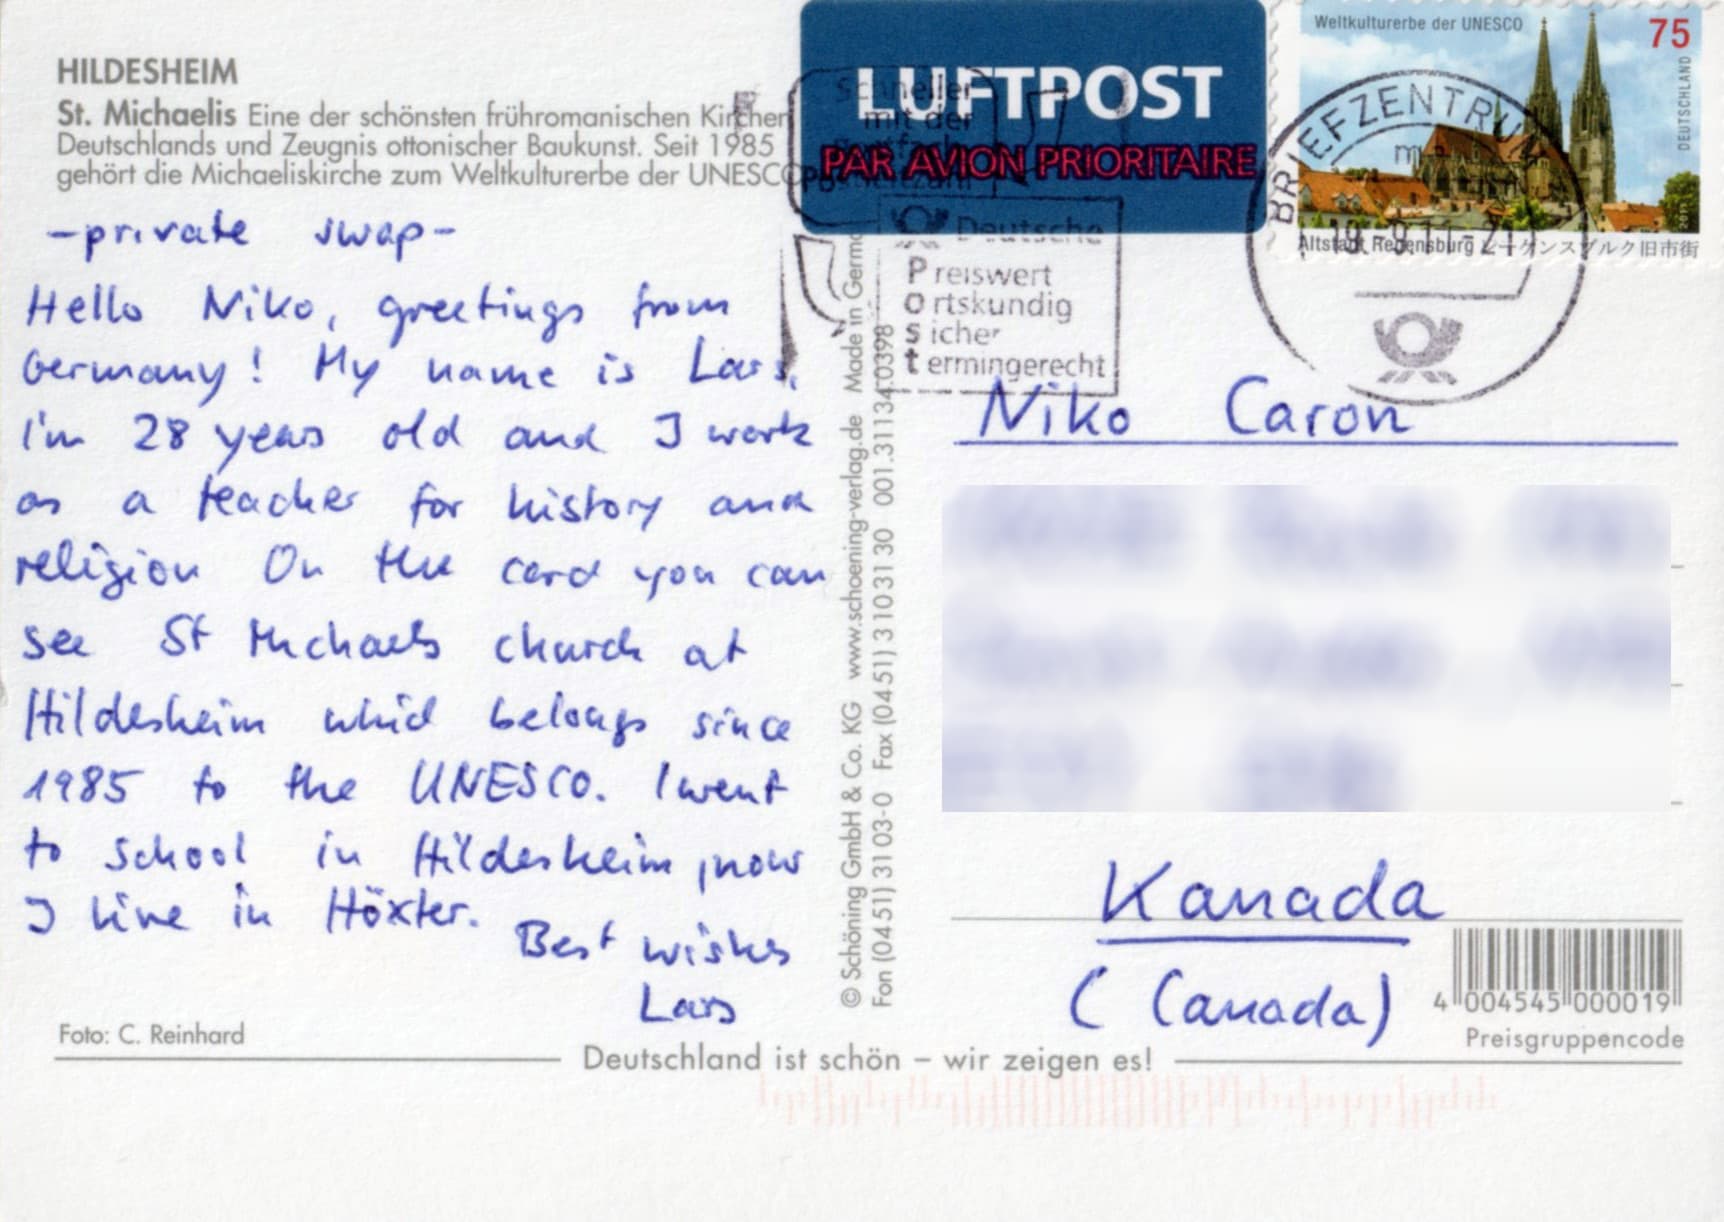 HILDESHEIM
St. Michaelis Eine der schönsten frühromanischen Kirchen
Deutschlands und Zeugnis ottonischer Baukunst. Seit 1985
gehört die Michaeliskirche zum Weltkulturerbe der UNESCO
-private swap-
Hello Niko, greetings from
Germany! My name is Lars,
I'm 28 years old and I work
as a teacher for history and
religion On the card you can
see St Michaels church at
Hildesheim which belongs since
1985 to the UNESCO. I went
to school in Hildesheim, now
I live in Höxter.
Best wishes
Lars
Foto: C. Reinhard
Deutschland ist schön – wir zeigen es!
© Schöning GmbH & Co. KG www.schoening-verlag.de Made in Germ
Fon (0451) 31 03-0 Fax (0451) 3 10 31 30 001.31134.0398
LUFTPOST
PAR AVION PRIORITAIRE
Schneller
mit der
Deutsche
Preiswert
Ortskundig
Sicher
termingerecht
Weltkulturerbe der UNESCO
75
DEUTSCHLAND
2011
Altstadt Regensburg レーゲンスブルク旧市街
BRIEFZENTRUM
19.-9.11-21
Niko Caron
Kanada
(Canada)
4 004545 000019
Preisgruppencode